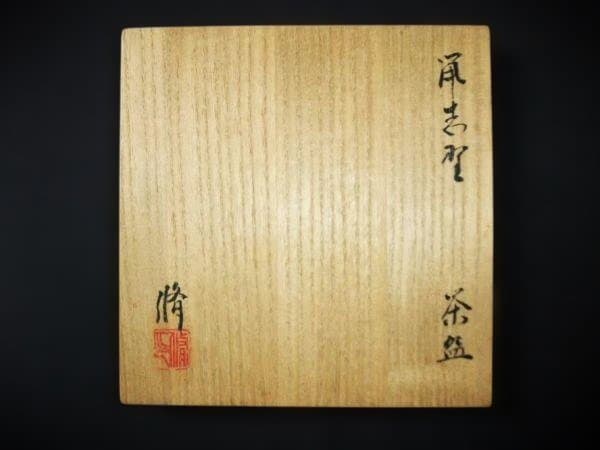 鼠志野 茶盌
脩